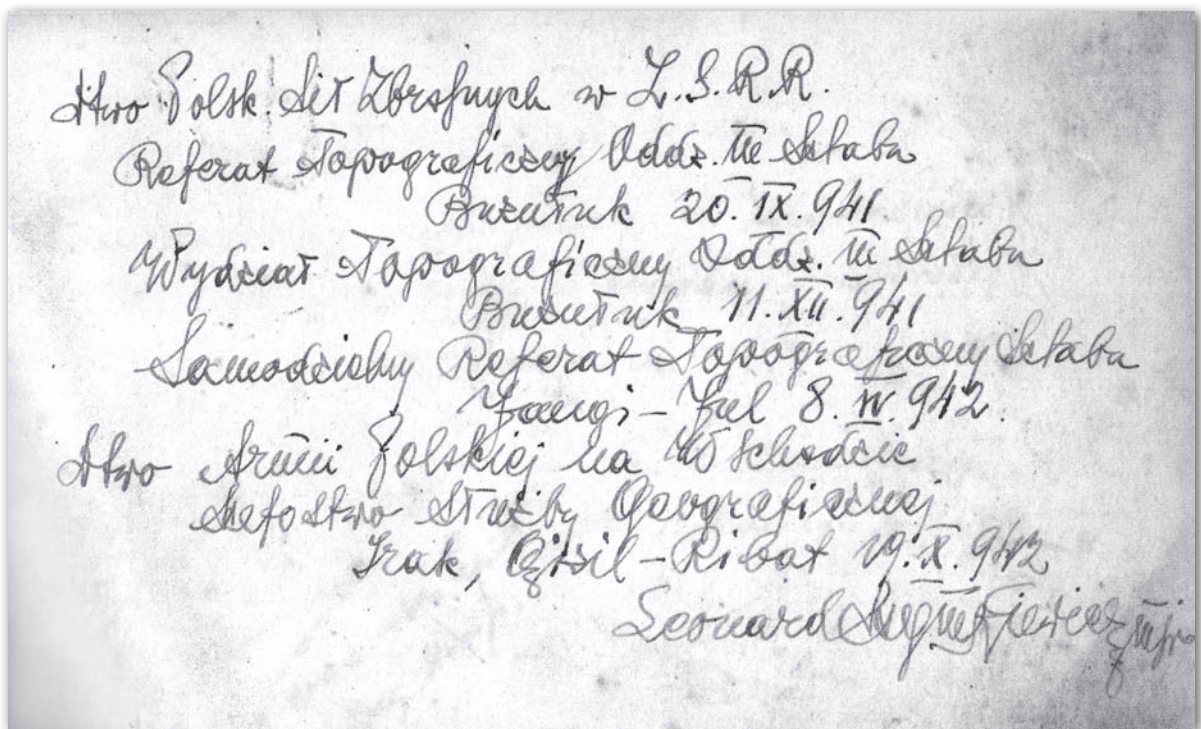 Dtwo Polsk. Sił Zbrojnych w Z.S.R.R.
Referat Topograficzny Oddz. III Sztabu
Buzułuk 20.IX.941
Wydział Topograficzny Oddz. III Sztabu
Buzułuk 11.XII.941
Samodzielny Referat Topograficzny Sztabu
Jangi-Jul 8.IV.942.
Dtwo Armii Polskiej na Wschodzie
Szefostwo Służby Geograficznej
Irak, Qizil-Ribat 19.X.942
Leonard mjr